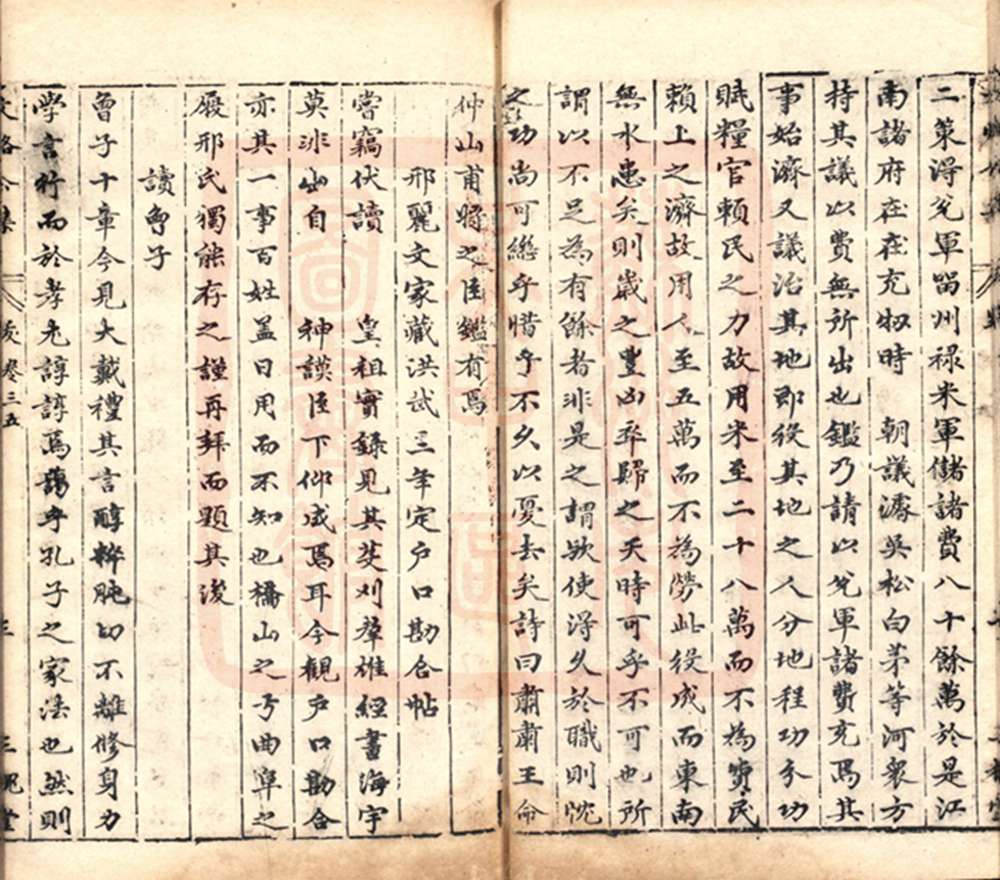 二策得兌軍留州祿米軍儲諸費八十餘萬於是江
南諸府在在充牣時　朝議濬吳松白茅等河衆方
持其議以費無所出也鑑乃請以兌軍諸費充焉其
事始濟又議治其地即役其地之人分地程功分功
賦糧官賴民之力故用米至二十八萬而不為費民
賴上之濟故用人至五萬而不為勞此役成而東南
無水患矣則歲之豐凶卒歸之天時可乎不可也所
謂以不足為有餘者非是之謂歟使得久於職則悅
之功尚可繼乎惜乎不久以憂去矣詩曰肅肅王命
仲山甫將之臣鑑有焉
邢麗文家藏洪武三年定戶口勘合帖
嘗竊伏讀　皇祖實錄見其芟刈羣雄經畫海宇
莫非出自　神謨臣下仰成焉耳今觀戶口勘合
亦其一事百姓盖日用而不知也橋山之弓曲阜之
履邢氏獨能存之謹再拜而題其後
讀曾子
曾子十章今見大戴禮其言醇粹肫切不離修身力
學言行而於孝尤諄諄焉藹乎孔子之家法也然則
後卷三五